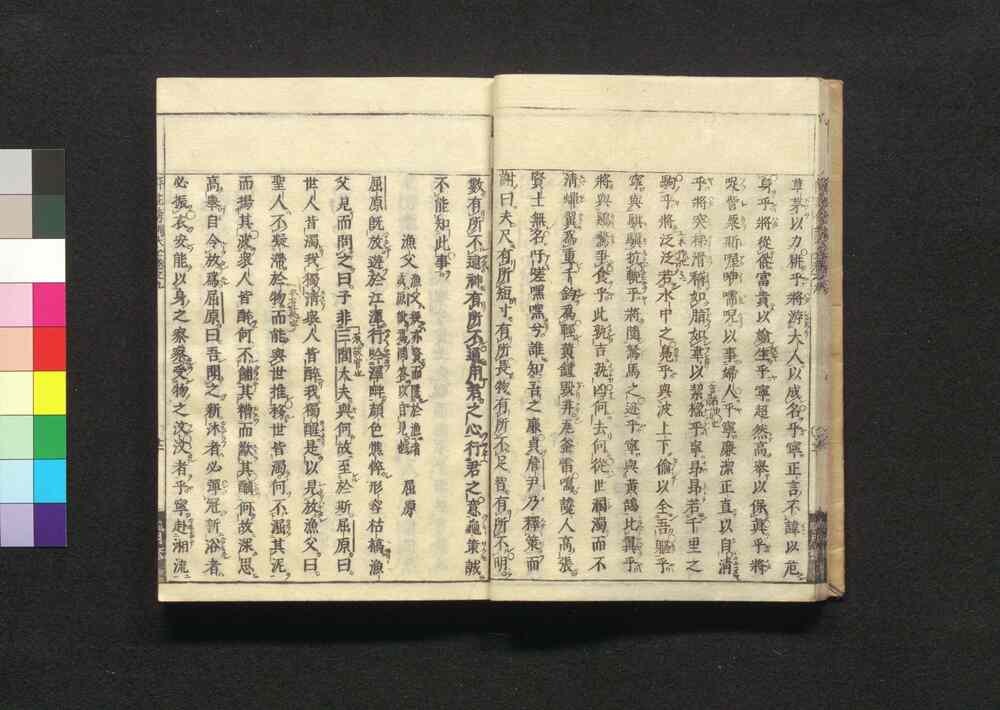 草茅以力耕乎將游大人以成名乎寧正言不諱以危
身乎將從俗富貴以媮生乎寧超然高舉以保真乎將
呢訾栗斯喔咿嚅唲以事婦人乎寧廉潔正直以自清
乎將突梯滑稽如脂如韋以絜楹乎寧昂昂若千里之
駒乎將泛泛若水中之鳧乎與波上下偷以全吾軀乎
寧與騏驥抗軛乎將隨駑馬之迹乎寧與黃鵠比翼乎
將與雞鶩爭食乎此孰吉孰凶何去何從世溷濁而不
清蟬翼為重千鈞為輕黃鐘毀弃瓦釜雷鳴讒人高張
賢士無名吁嗟嘿嘿兮誰知吾之廉貞詹尹乃釋策而
謝曰夫尺有所短寸有所長物有所不足智有所不明
數有所不逮神有所不通用君之心行君之意龜策誠
不能知此事
漁父 屈原
屈原既放遊於江潭行吟澤畔顏色憔悴形容枯槁漁
父見而問之曰子非三閭大夫與何故至於斯屈原曰
世人皆濁我獨清衆人皆醉我獨醒是以見放漁父曰
聖人不凝滯於物而能與世推移世皆濁何不淈其泥
而揚其波衆人皆醉何不餔其糟而歠其醨何故深思
高舉自令放爲屈原曰吾聞之新沐者必彈冠新浴者
必振衣安能以身之察察受物之汶汶者乎寧赴湘流